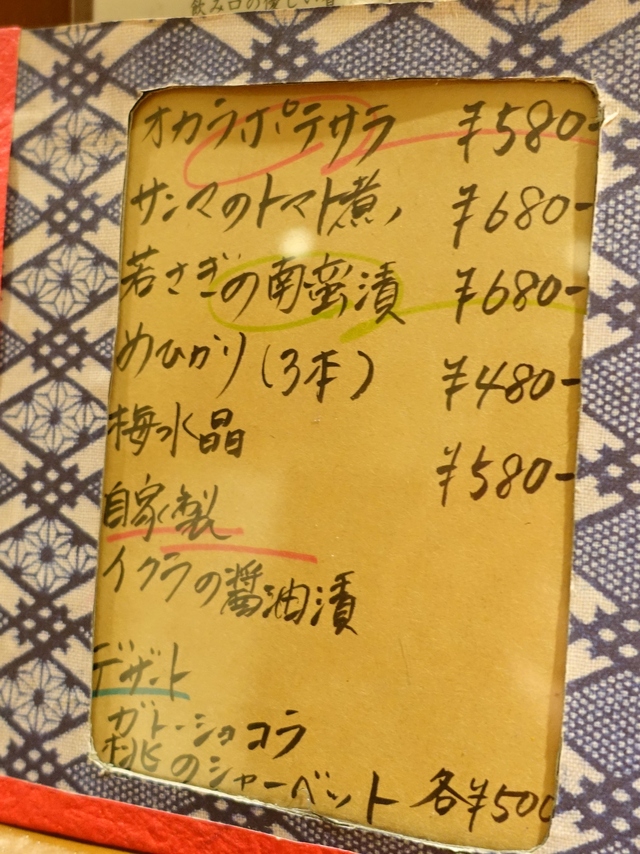 飲み口の優しい香
オカラポテサラ ¥580-
サンマのトマト煮 ¥680-
若さぎの南蛮漬 ¥680-
めひかり(3本) ¥480-
梅水晶 ¥580-
自家製
イクラの醤油漬
デザート
ガトーショコラ
桃のシャーベット 各¥500